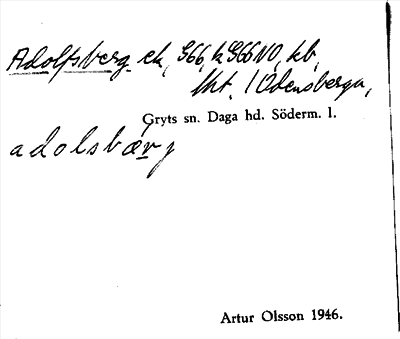 Adolfsberg ek, 966, h 966 NO, kb,
tht. / Odensberga,
Gryts sn. Daga hd. Söderm. l.
adolsbærj
Artur Olsson 1946.